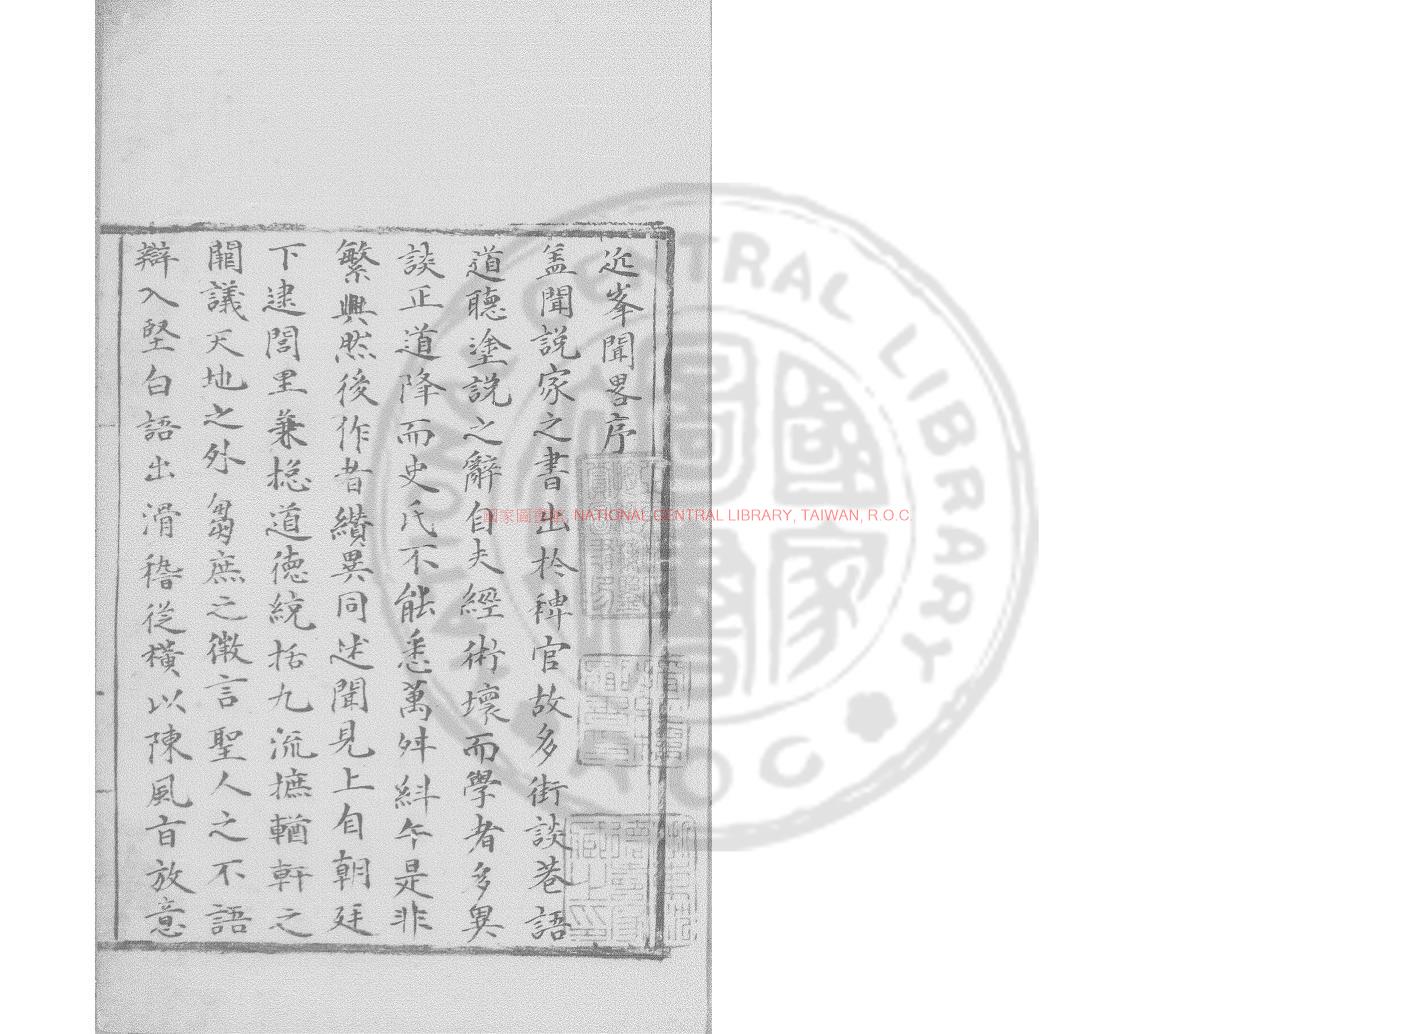 近峯聞畧序
盖聞說家之書出於稗官故多街談巷語
道聽塗說之辭自夫經術壞而學者多異
談正道降而史氏不能悉萬舛糾午是非
繁興然後作者纘異同述聞見上自朝廷
下逮閭里兼揔道德統括九流摭輶軒之
闕議天地之外芻蕘之微言聖人之不語
辯入堅白語出滑稽從橫以陳風旨放意
國家圖書館 NATIONAL CENTRAL LIBRARY, TAIWAN, R.O.C.
NATIONAL CENTRAL LIBRARY
TAIWAN R.O.C